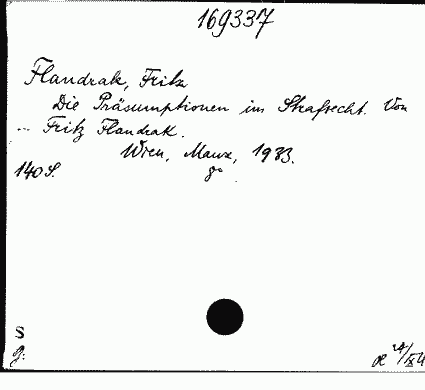 169337
Flandrak, Fritz
Die Präsumptionen im Strafrecht. Von
... Fritz Flandrak.
Wien, Manz, 1933.
140 S. 8°
S